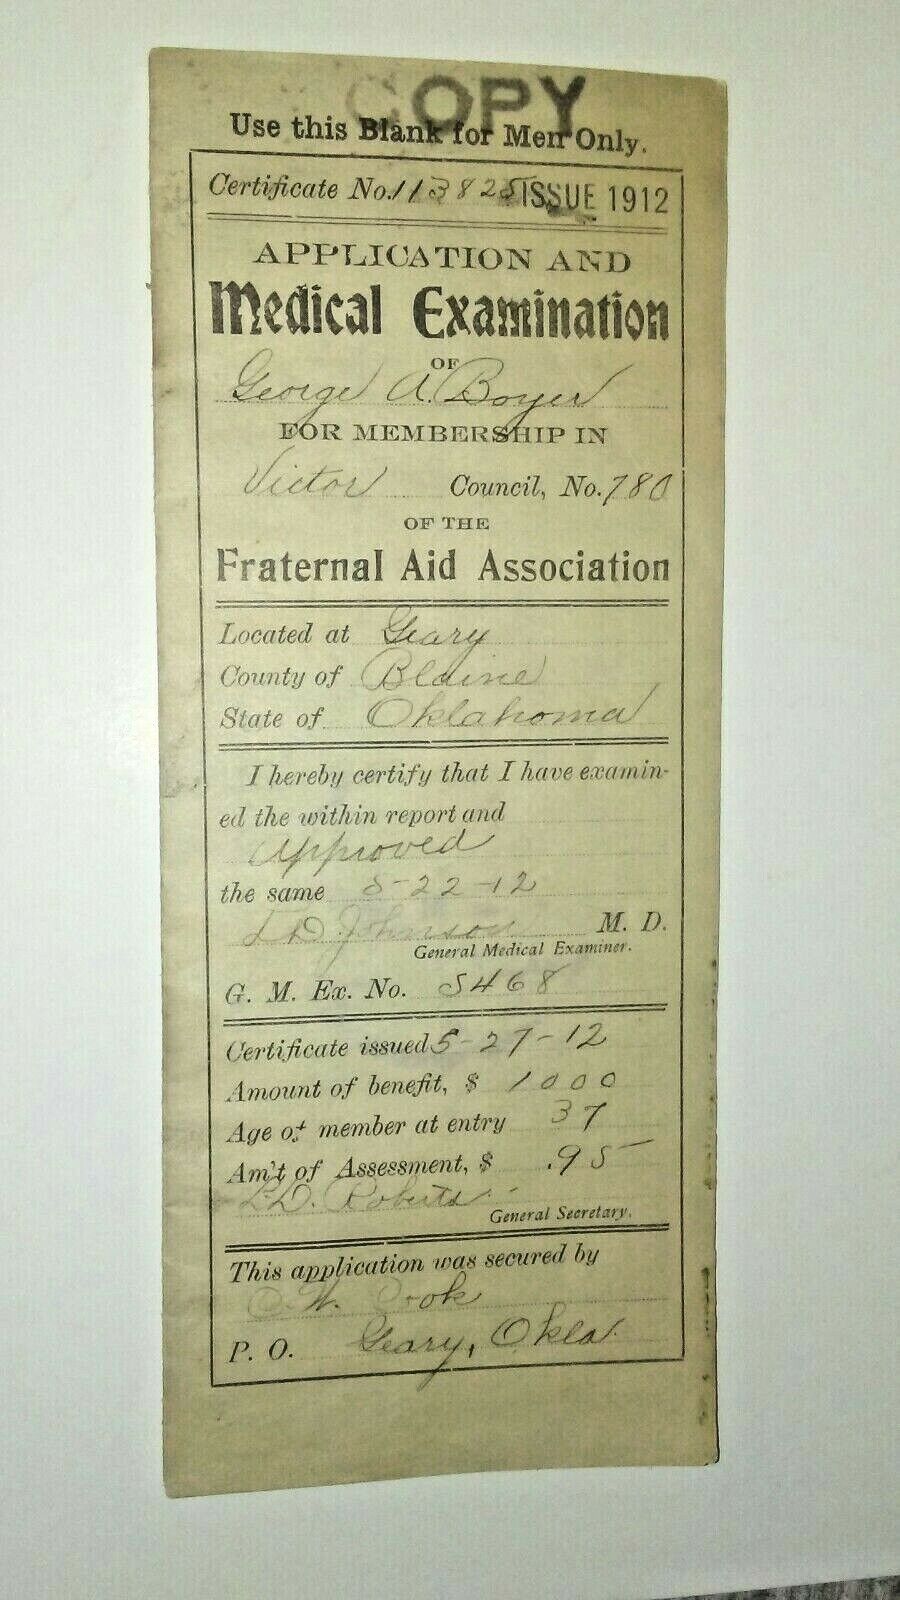 COPY
Use this Blank for Men Only.
Certificate No. 113825 ISSUE 1912
APPLICATION AND
Medical Examination
OF
George A. Boyer
FOR MEMBERSHIP IN
Victor Council, No. 780
OF THE
Fraternal Aid Association
Located at Geary
County of Blaine
State of Oklahoma
I hereby certify that I have examin-
ed the within report and
Approved
the same 5-22-12
Johnson M. D.
General Medical Examiner.
G. M. Ex. No. 5468
Certificate issued 5-27-12
Amount of benefit, $ 1000
Age of member at entry 37
Am't of Assessment, $ .95
L.D. Roberts
General Secretary.
This application was secured by
W.
P. O. Geary, Okla.